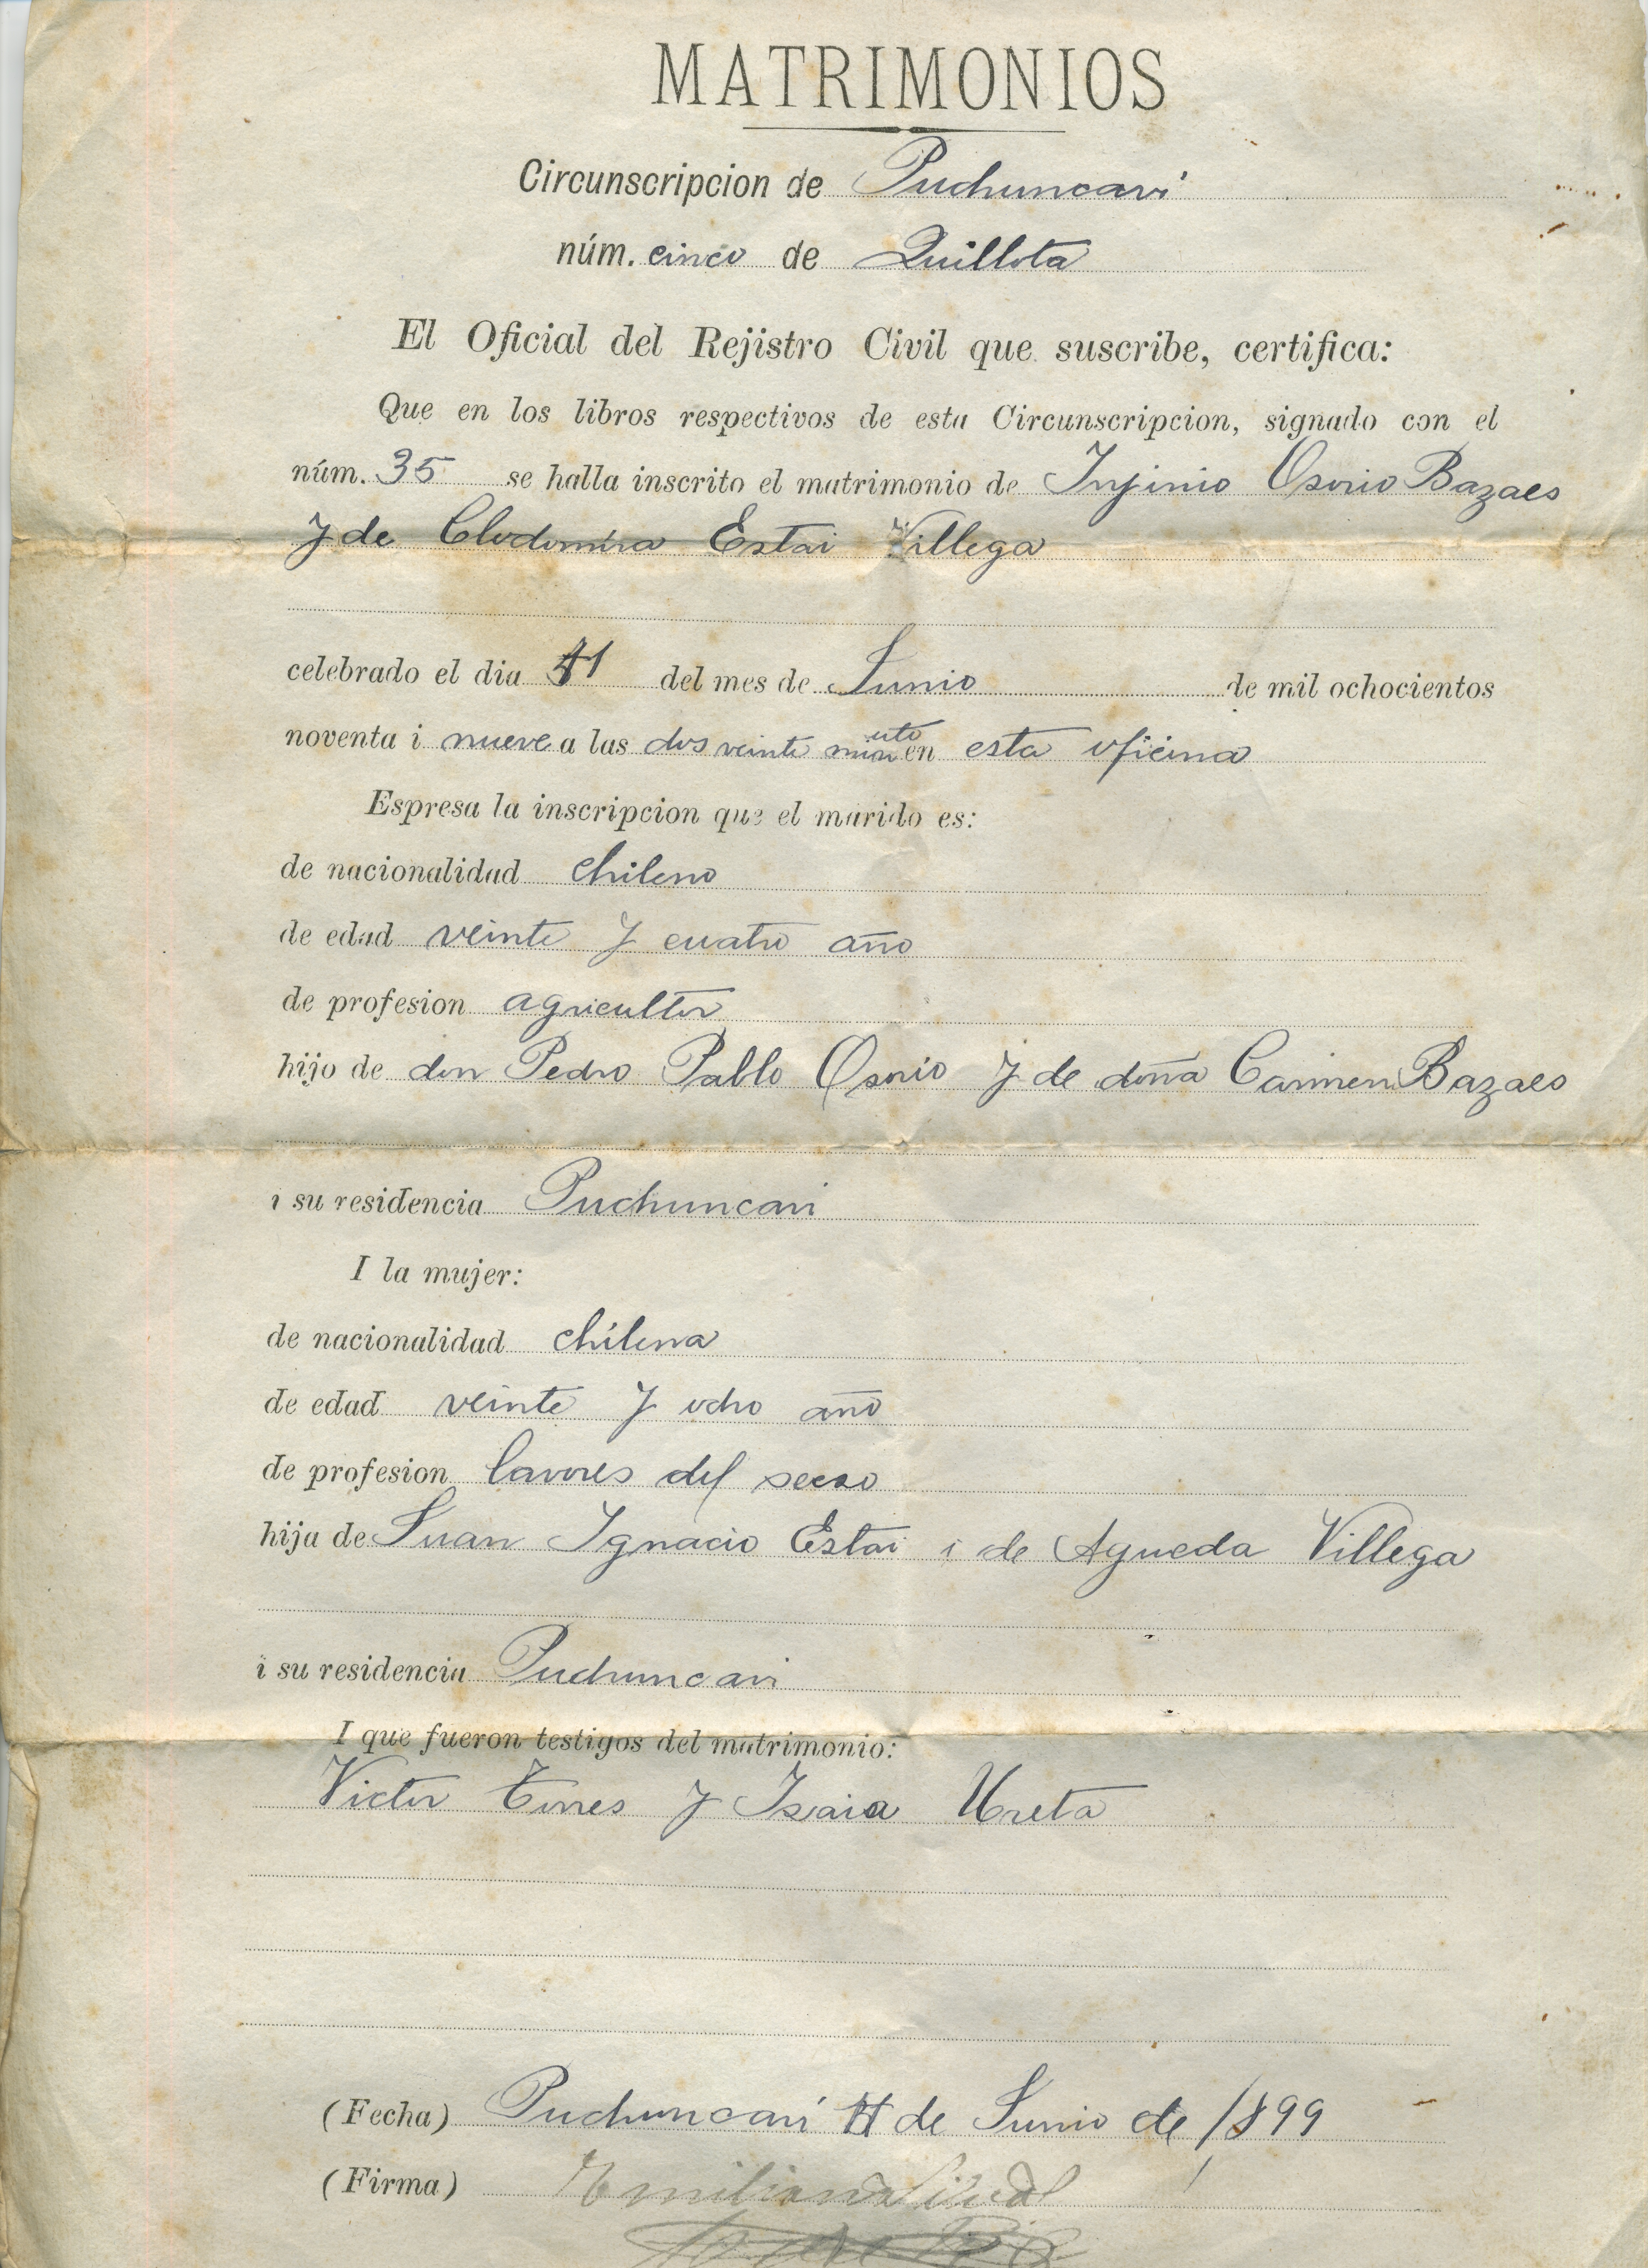 MATRIMONIOS
Circunscripcion de Puchuncavi
núm. cinco de Quillota
El Oficial del Rejistro Civil que suscribe, certifica:
Que en los libros respectivos de esta Circunscripcion, signado con el
núm. 35 se halla inscrito el matrimonio de Injinio Osorio Bazaes
y de Clodomira Estai Villega
celebrado el dia 11 del mes de Junio de mil ochocientos
noventa i nueve a las dos veinte minuto en esta oficina
Espresa la inscripcion que el marido es:
de nacionalidad chileno
de edad veinte y cuatro año
de profesion agricultor
hijo de don Pedro Pablo Osorio y de doña Carmen Bazaes
i su residencia Puchuncavi
I la mujer:
de nacionalidad chilena
de edad veinte y ocho año
de profesion lavores del secso
hija de Juan Ignacio Estai i de Agueda Villega
i su residencia Puchuncavi
I que fueron testigos del matrimonio:
Victor Torres y Isaia Ureta
(Fecha) Puchuncavi 11 de Junio de 1899
(Firma) Emiliano